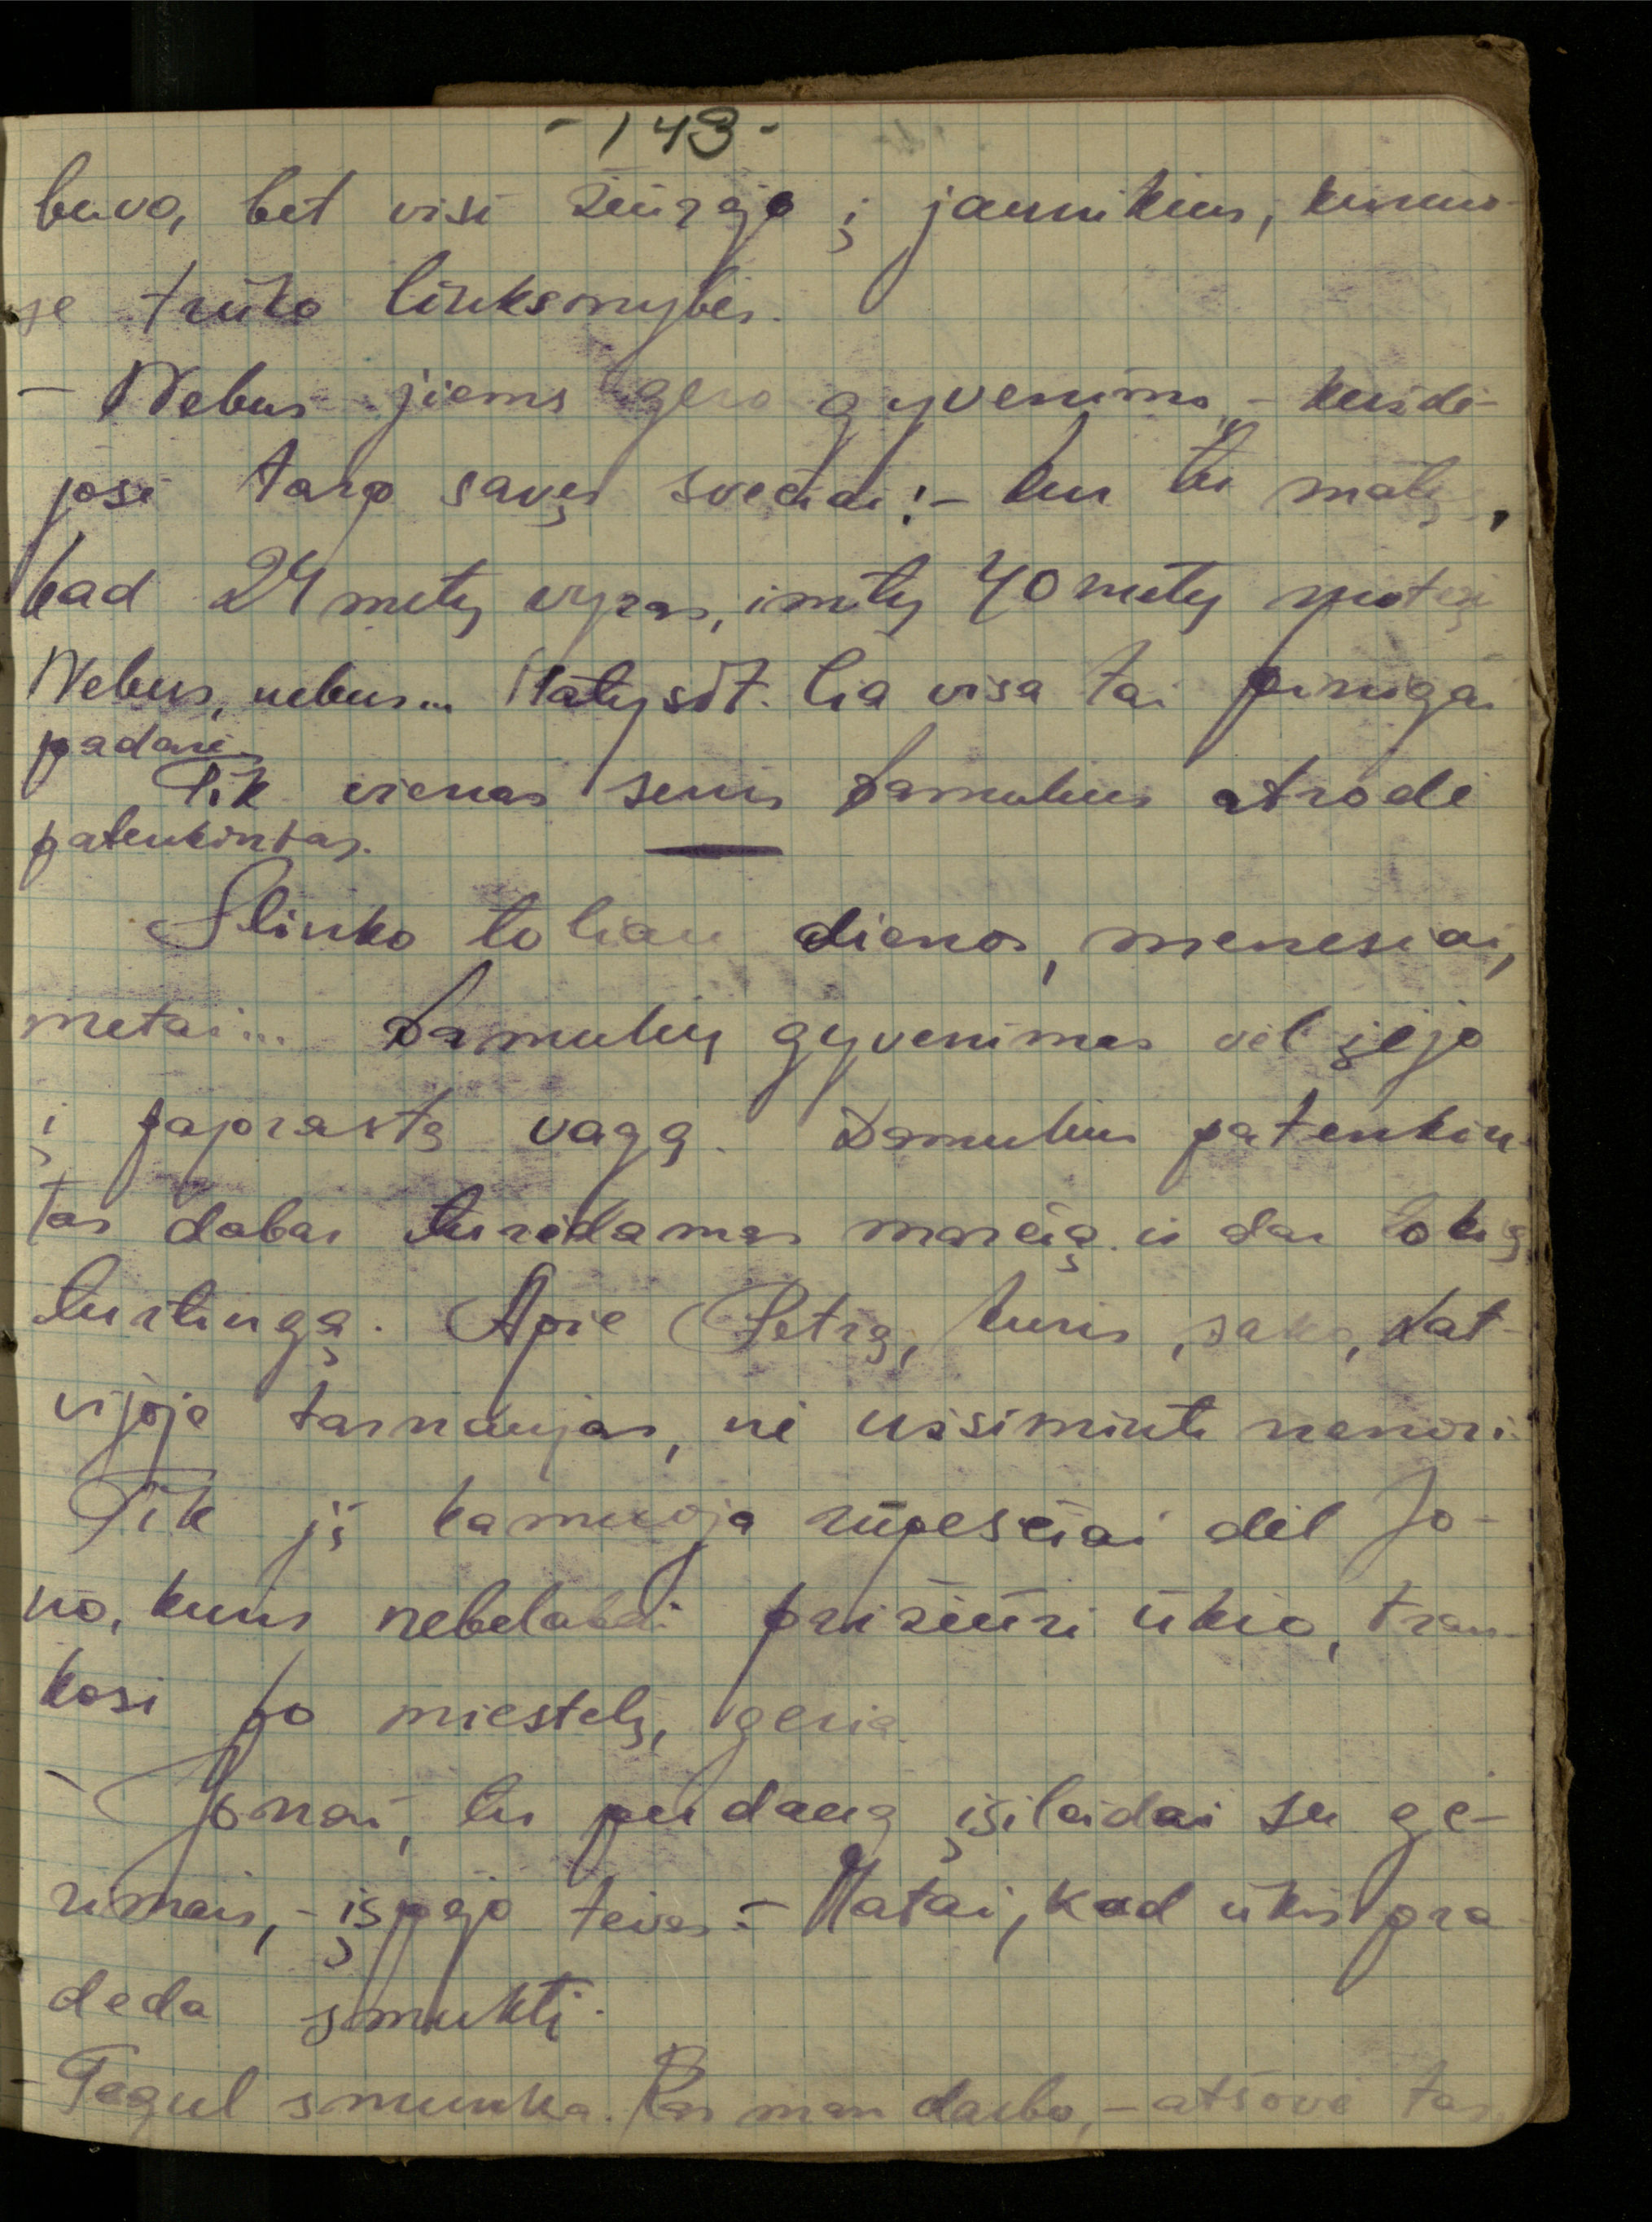 - 143 -
buvo, bet visi žiūrėjo į jaunikius, kuriuo-
se trūko linksmybės.
- Nebus jiems gero gyvenimo, - kuždė-
josi tarp savęs svečiai! - kur tai matę,
kad 24 metų vyras, imtų 40 metų moterį
Nebus, nebus... Matysit. Čia visa tai pinigai
padarė.
Tik vienas senis Damulius atrodė
patenkintas.
Slinko toliau dienos, menesiai,
metai... Damulių gyvenimas vėl įėjo
į paprastą vagą. Damulius patenkin-
tas dabar turėdamas marčią ir dar tokią
turtingą. Apie Petrą, kuris, sako, Lat-
vijoje tarnaujas, nė užsiminti nenori.
Tik jį kamuoja rūpesčiai dėl Jo-
no, kuris nebelabai prižiūri ūkio, tran-
kosi po miestelį, geria.
- Jonai, tu perdaug įsileidai su gė-
rimais, - įspėjo tėvas - Matai, kad ūkis pra
deda smukti.
- Tegul smunka. Kas man darbo, - atšovė tas